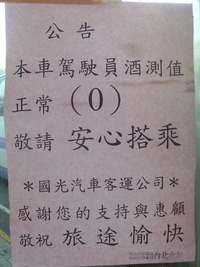 公告
本車駕駛員酒測值
正常(0)
敬請 安心搭乘
*國光汽車客運公司*
感謝您的支持與惠顧
敬祝 旅途愉快